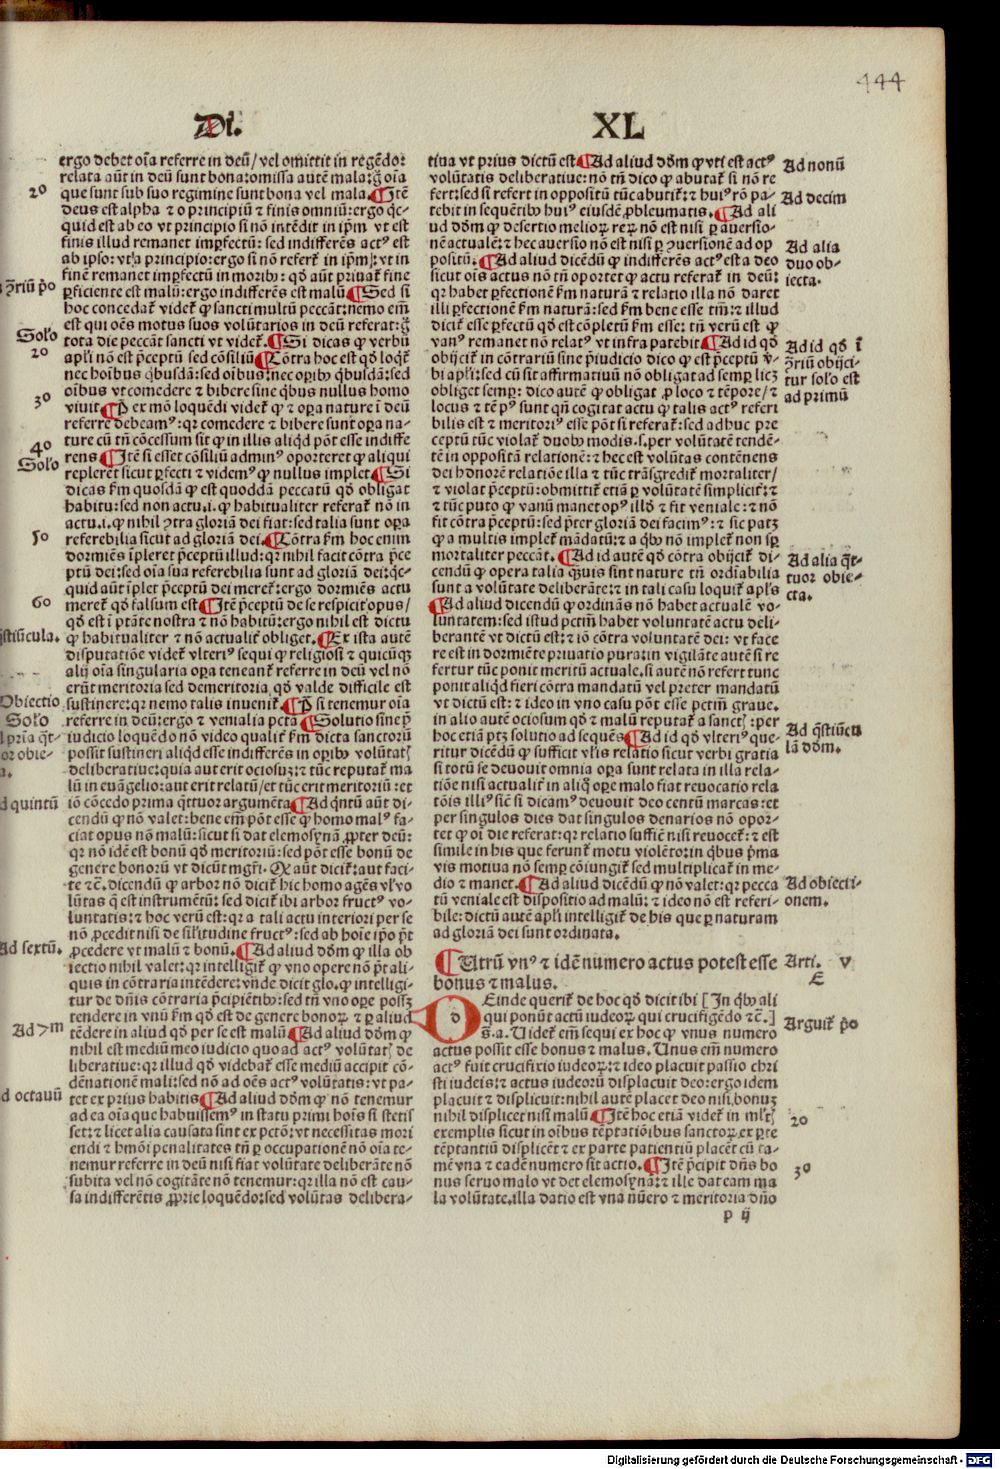 444
Di. XL
ergo debet oīa referre in deū / vel omittit in regēdo:
relata aūt in deū sunt bona: omissa autē mala: g̊ oīa
que sunt sub suo regimine sunt bona vel mala. ¶ Itē
deus est alpha ⁊ o principiū ⁊ finis omniū: ergo q̄c-
quid est ab eo vt principio si nō intēdit in ip̄m vt est
finis illud remanet imꝑfectū: sed indifferēs actꝰ est
ab ipso: vt a principio: ergo si nō refert̄ in ip̄m: vt in
finē remanet imperfectū in moribꝰ: qd̄ aūt priuat̄ fine
ꝑficiente est malū: ergo indifferēs est malū ¶ Sed si
hoc concedat̄ videt̄ ꝙ sancti multū peccāt: nemo em̄
est qui oēs motus suos volūtarios in deū referat: g̊
tota die peccāt sancti vt videt̄. ¶ Si dicas ꝙ verbū
apl̄i nō est p̄ceptū sed cōsiliū ¶ Cōtra hoc est qd̄ loq̄t̄
nec hoībus q̄busdā: sed oībus: nec oꝑibꝰ q̄busdā: sed
oībus vt comedere ⁊ bibere sine q̄bus nullus homo
viuit ¶ P̄ ex mō loquēdi videt̄ ꝙ ⁊ oꝑa nature ī deū
referre debeamꝰ: qꝛ comedere ⁊ bibere sunt oꝑa na-
ture cū tn̄ cōcessum sit ꝙ in illis aliq̄d pōt esse indiffe
rens ¶ Itē si esset cōsiliū adminꝰ oporteret ꝙ aliqui
repleret sicut ꝑfecti ⁊ videmꝰ ꝙ nullus implet ¶ Si
dicas ẜm quosdā ꝙ est quoddā peccatū qd̄ obligat
habitu: sed non actu .i. ꝙ habitualiter referat̄ nō in
actu .i. ꝙ nihil ꝯtra gloriā dei fiat: sed talia sunt oꝑa
referebilia sicut ad gloriā dei. ¶ Cōtra ẜm hoc enim
dormiēs īpleret p̄ceptū illud: qꝛ nihil facit cōtra p̄ce
ptū dei: sed oīa sua referebilia sunt ad gloriā dei: q̄c-
quid aūt īplet p̄ceptū dei meret̄: ergo dormiēs actu
meret̄ qd̄ falsum est ¶ Itē p̄ceptū de se respicit opus /
qd̄ est ī p̄tāte nostra ⁊ nō habitū: ergo nihil est dictu
ꝙ habitualiter ⁊ nō actualit̄ obliget. ¶ Ex ista autē
disputatiōe videt̄ vlteriꝰ sequi ꝙ religiosi ⁊ quicūqꝫ
alij oīa singularia oꝑa teneant̄ referre in deū vel nō
erūt meritoria sed demeritoria, qd̄ valde difficile est
sustinere: qꝛ nemo talis inuenit̄ ¶ P̄ si tenemur oīa
referre in deū: ergo ⁊ venialia pctā ¶ Solutio sine p̄
iudicio loquēdo nō video qualit̄ ẜm dicta sanctorū
possit sustineri aliq̄d esse indifferēs in oꝑibꝰ volūtatꝭ
deliberatiue: quia aut erit ociosuꝫ: ⁊ tūc reputat̄ ma
lū in euāgelio: aut erit relatū / et tūc erit meritoriū: et
iō cōcedo prima q̄ttuor argumēta ¶ Ad q̄ntū aūt di-
cendū ꝙ nō valet: bene em̄ pōt esse ꝙ homo malꝰ fa-
ciat opus nō malū: sicut si dat elemosynā ꝓpter deū:
qꝛ nō idē est bonū qd̄ meritoriū: sed pōt esse bonū de
genere bonorū vt dicūt mgr̄i. Qꝛ aūt dicit̄: aut faci-
te ⁊c̄. dicendū ꝙ arbor nō dicit̄ hic homo agēs vl̓ vo
lūtas q̄ est instrumētū: sed dicit̄ ibi arbor fructꝰ vo-
luntatis: ⁊ hoc verū est: qꝛ a tali actu interiori per se
nō ꝓcedit nisi de sil̓itudine fructꝰ: sed ab hoīe ip̄o p̄t
ꝓcedere vt malū ⁊ bonū. ¶ Ad aliud dōm ꝙ illa ob
iectio nihil valet: qꝛ intelligit̄ ꝙ vno opere nō p̄t ali-
quis in cōtraria intēdere: vnde dicit glo. ꝙ intelligi-
tur de dn̄is cōtraria p̄cipiētibꝰ: sed tn̄ vno oꝑe possꝫ
tendere in vnū ẜm qd̄ est de genere bonoꝝ ⁊ ꝑ aliud
tēdere in aliud qd̄ per se est malū ¶ Ad aliud dōm ꝙ
nihil est mediū meo iudicio quo ad actꝰ volūtatꝭ de
liberatiue: qꝛ illud qd̄ videbat̄ esse mediū accipit cō-
dēnationē mali: sed nō ad oēs actꝰ volūtatis: vt pa-
tet ex prius habitis ¶ Ad aliud dōm ꝙ nō tenemur
ad ea oīa que habuissemꝰ in statu primi hoīs si stetis
set: ⁊ licet alia causata sint ex pctō: vt necessitas mori
endi ⁊ hmōi penalitates tn̄ ꝑ occupationē nō oīa te-
nemur referre in deū nisi fiat volūtate deliberāte nō
subita vel nō cogitāte nō tenemur: qꝛ illa nō est cau-
sa indifferētis ꝓprie loquēdo: sed volūtas delibera-
20
ꝯ̄riū p̄o
Solo
20
30
40
Solo
50
60
q̄stiūcula.
Obiectio
Solo
l p̄ria q̄t-
or obie-
a.
d quintū
Ad sextū.
Ad 7m
d octauū
tiua vt prius dictū est ¶ Ad aliud dōm ꝙ vti est actꝰ
volūtatis deliberatiue: nō tn̄ dico ꝙ abutat̄ si nō re
fert: sed si refert in oppositū tūc abutit̄: ⁊ huiꝰ rō pa-
tebit in sequētibꝰ huiꝰ eiusdē ꝓbleumatis. ¶ Ad ali
ud dōm ꝙ desertio melioꝝ reꝝ nō est nisi ꝑ auersio-
nē actualē: ⁊ hec auersio nō est nisi ꝑ ꝯuersionē ad op
positū. ¶ Ad aliud dicēdū ꝙ indifferēs actꝰ est a deo
sicut oīs actus nō tn̄ oportet ꝙ actu referat̄ in deū:
qꝛ habet ꝑfectionē ẜm naturā ⁊ relatio illa nō daret
illi ꝑfectionē ẜm naturā: sed ẜm bene esse tm̄: ⁊ illud
dicit̄ esse ꝑfectū qd̄ est cōpletū ẜm esse: tn̄ verū est ꝙ
vanꝰ remanet nō relatꝰ vt infra patebit ¶ Ad id qd̄
obijcit̄ in cōtrariū sine p̄iudicio dico ꝙ est p̄ceptū v̓-
bi apl̄i: sed cū sit affirmatiuū nō obligat ad semꝑ licꝫ
obliget semꝑ: dico autē ꝙ obligat ꝓ loco ⁊ tēpore / ⁊
locus ⁊ tēpꝰ sunt qn̄ cogitat actu ꝙ talis actꝰ referi
bilis est ⁊ meritoriꝰ esse pōt si referat̄: sed adhuc pre
ceptū tūc violat̄ duobꝰ modis .s. per volūtatē tendē-
tē in oppositā relationē: ⁊ hec est volūtas contēnens
dei honorē relatiōe illa ⁊ tūc trāsgredit̄ mortaliter /
⁊ violat p̄ceptū: obmittit̄ etiā ꝑ volūtatē simplicit̄: ⁊
⁊ tūc puto ꝙ vanū manet opꝰ illd̄ ⁊ fit veniale: ⁊ nō
fit cōtra p̄ceptū: sed p̄ter gloriā dei facimꝰ: ⁊ sic patꝫ
ꝙ a multis implet̄ mādatū: ⁊ a qbꝰ nō implet̄ non sꝑ
mortaliter peccāt. ¶ Ad id autē qd̄ cōtra obijcit̄ di-
cendū ꝙ opera talia q̄uis sint nature tn̄ ordīabilia
sunt a volūtate deliberāte: ⁊ in tali casu loquit̄ apl̓s
¶ Ad aliud dicendū ꝙ ordināns nō habet actualē vo-
luntatem: sed istud pctm̄ habet voluntatē actu deli-
berantē vt dictū est: ⁊ iō cōtra voluntatē dei: vt face
re est in dormiēte priuatio pura: in vigilāte autē si re
fertur tūc ponit meritū actuale, si autē nō refert tunc
ponit aliq̄d fieri cōtra mandatū vel preter mandatū
vt dictū est: ⁊ ideo in vno casu pōt esse pctm̄ graue,
in alio autē ociosum qd̄ ⁊ malū reputat̄ a sanctꝭ: per
hoc etiā ptꝫ solutio ad sequēs ¶ Ad id qd̄ vlteriꝰ que-
ritur dicēdū ꝙ sufficit vl̓is relatio sicut verbi gratia
si totū se deuouit omnia oꝑa sunt relata in illa rela-
tiōe nisi actualit̄ in aliq̊ oꝑe malo fiat reuocatio rela
tōis illiꝰ sic̄ si dicamꝰ deuouit deo centū marcas: et
per singulos dies dat singulos denarios nō opor-
tet ꝙ oī die referat: qꝛ relatio suffic̄ nisi reuocet̄: ⁊ est
simile in his que ferunt̄ motu violēto: in q̄bus p̄ma
vis motiua nō semꝑ cōiungit̄ sed multiplicat̄ in me-
dio ⁊ manet. ¶ Ad aliud dicēdū ꝙ nō valet: qꝛ pecca
tū veniale est dispositio ad malū: ⁊ ideo nō est referi-
bile: dictū autē apl̄i intelligit̄ de his que ꝑ naturam
ad gloriā dei sunt ordinata.
¶ Utrū vnꝰ ⁊ idē numero actus potest esse
bonus ⁊ malus.
d
Einde querit̄ de hoc qd̄ dicit ibi [In qbꝰ ali
qui ponūt actū iudeoꝝ qui crucifigēdo ⁊c̄.]
s̄.a. Videt̄ em̄ sequi ex hoc ꝙ vnus numero
actus possit esse bonus ⁊ malus. Unus em̄ numero
actꝰ fuit crucifixio iudeoꝝ: ⁊ ideo placuit passio chri
sti iudeis: ⁊ actus iudeorū displacuit deo: ergo idem
placuit ⁊ displicuit: nihil autē placet deo nisi, bonuꝫ
nihil displicet nisi malū ¶ Itē hoc etiā videt̄ in ml̓tꝭ
exemplis sicut in oībus tēptatiōibus sanctoꝝ, ex ꝑte
tēptantiū displicet̄ ⁊ ex parte patientiū placēt cū ta-
mē vna ⁊ eadē numero sit actio. ¶ Itē p̄cipit dn̄s bo
nus seruo malo vt det elemosynā: ⁊ ille dat eam ma
la volūtate, illa datio est vna nūero ⁊ meritoria dn̄o
p ij
Ad nonū
Ad decim
Ad alia
duo ob-
iecta.
Ad id qd̄ ī
ꝯ̄riū obijci-
tur solo est
ad primū
Ad alia q̄t-
tuor obie-
cta.
Ad q̄stiūcu
lā dōm.
Ad obiecti-
onem.
Arti. v
E
Arguit̄ p̄o
20
30
Digitalisierung gefördert durch die Deutsche Forschungsgemeinschaft - DFG